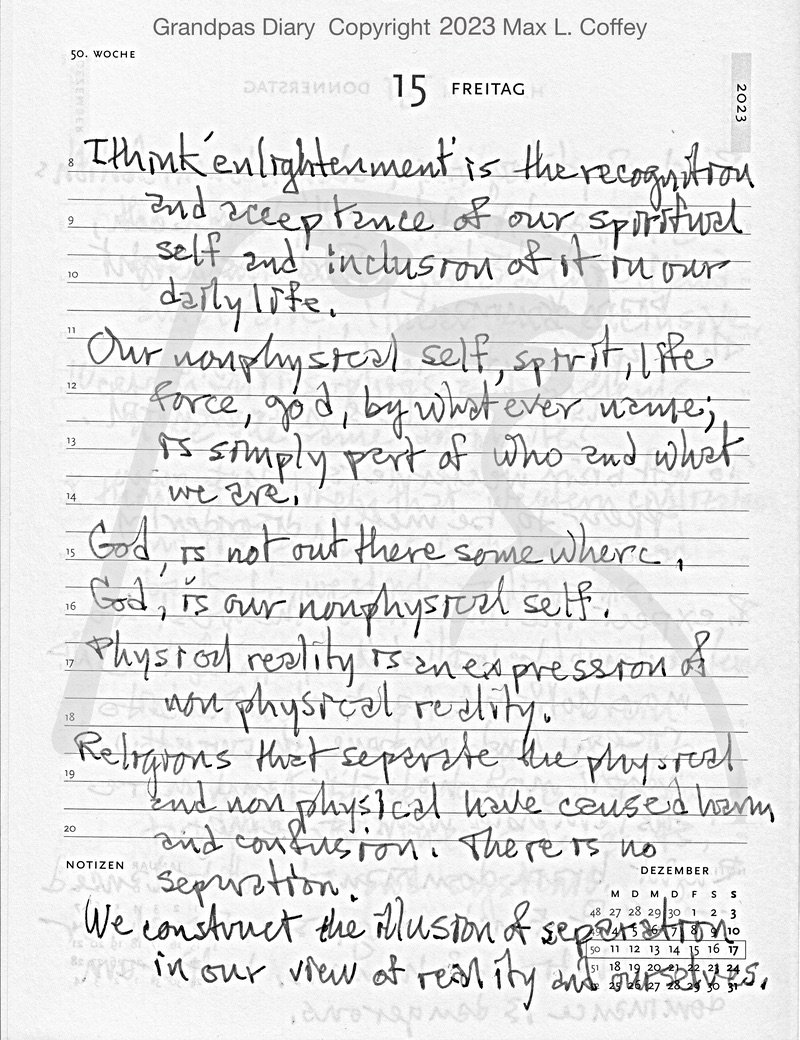 Grandpas Diary Copyright 2023 Max L. Coffey
50. WOCHE
15 FREITAG
2023
8 I think 'enlightenment' is the recognition
and acceptance of our spiritual
9
self and inclusion of it in our
10
daily life.
11 Our nonphysical self, spirit, life
12 force, god, by what ever name;
13 is simply part of who and what
14 we are.
15 God, is not out there some where.
16 God, is our nonphysical self.
17 Physical reality is an expression of
non physical reality.
18
Religions that seperate the physical
19
and non physical have caused harm
20 and confusion. There is no
NOTIZEN
seperation.
DEZEMBER
M D M D F S S
48 27 28 29 30 1 2 3
We construct the illusion of seperation
4 5 6 7 8 9 10
50 11 12 13 14 15 16 17
in our view of reality and ourselves.
51 18 19 20 21 22 23 24
25 26 27 28 29 30 31